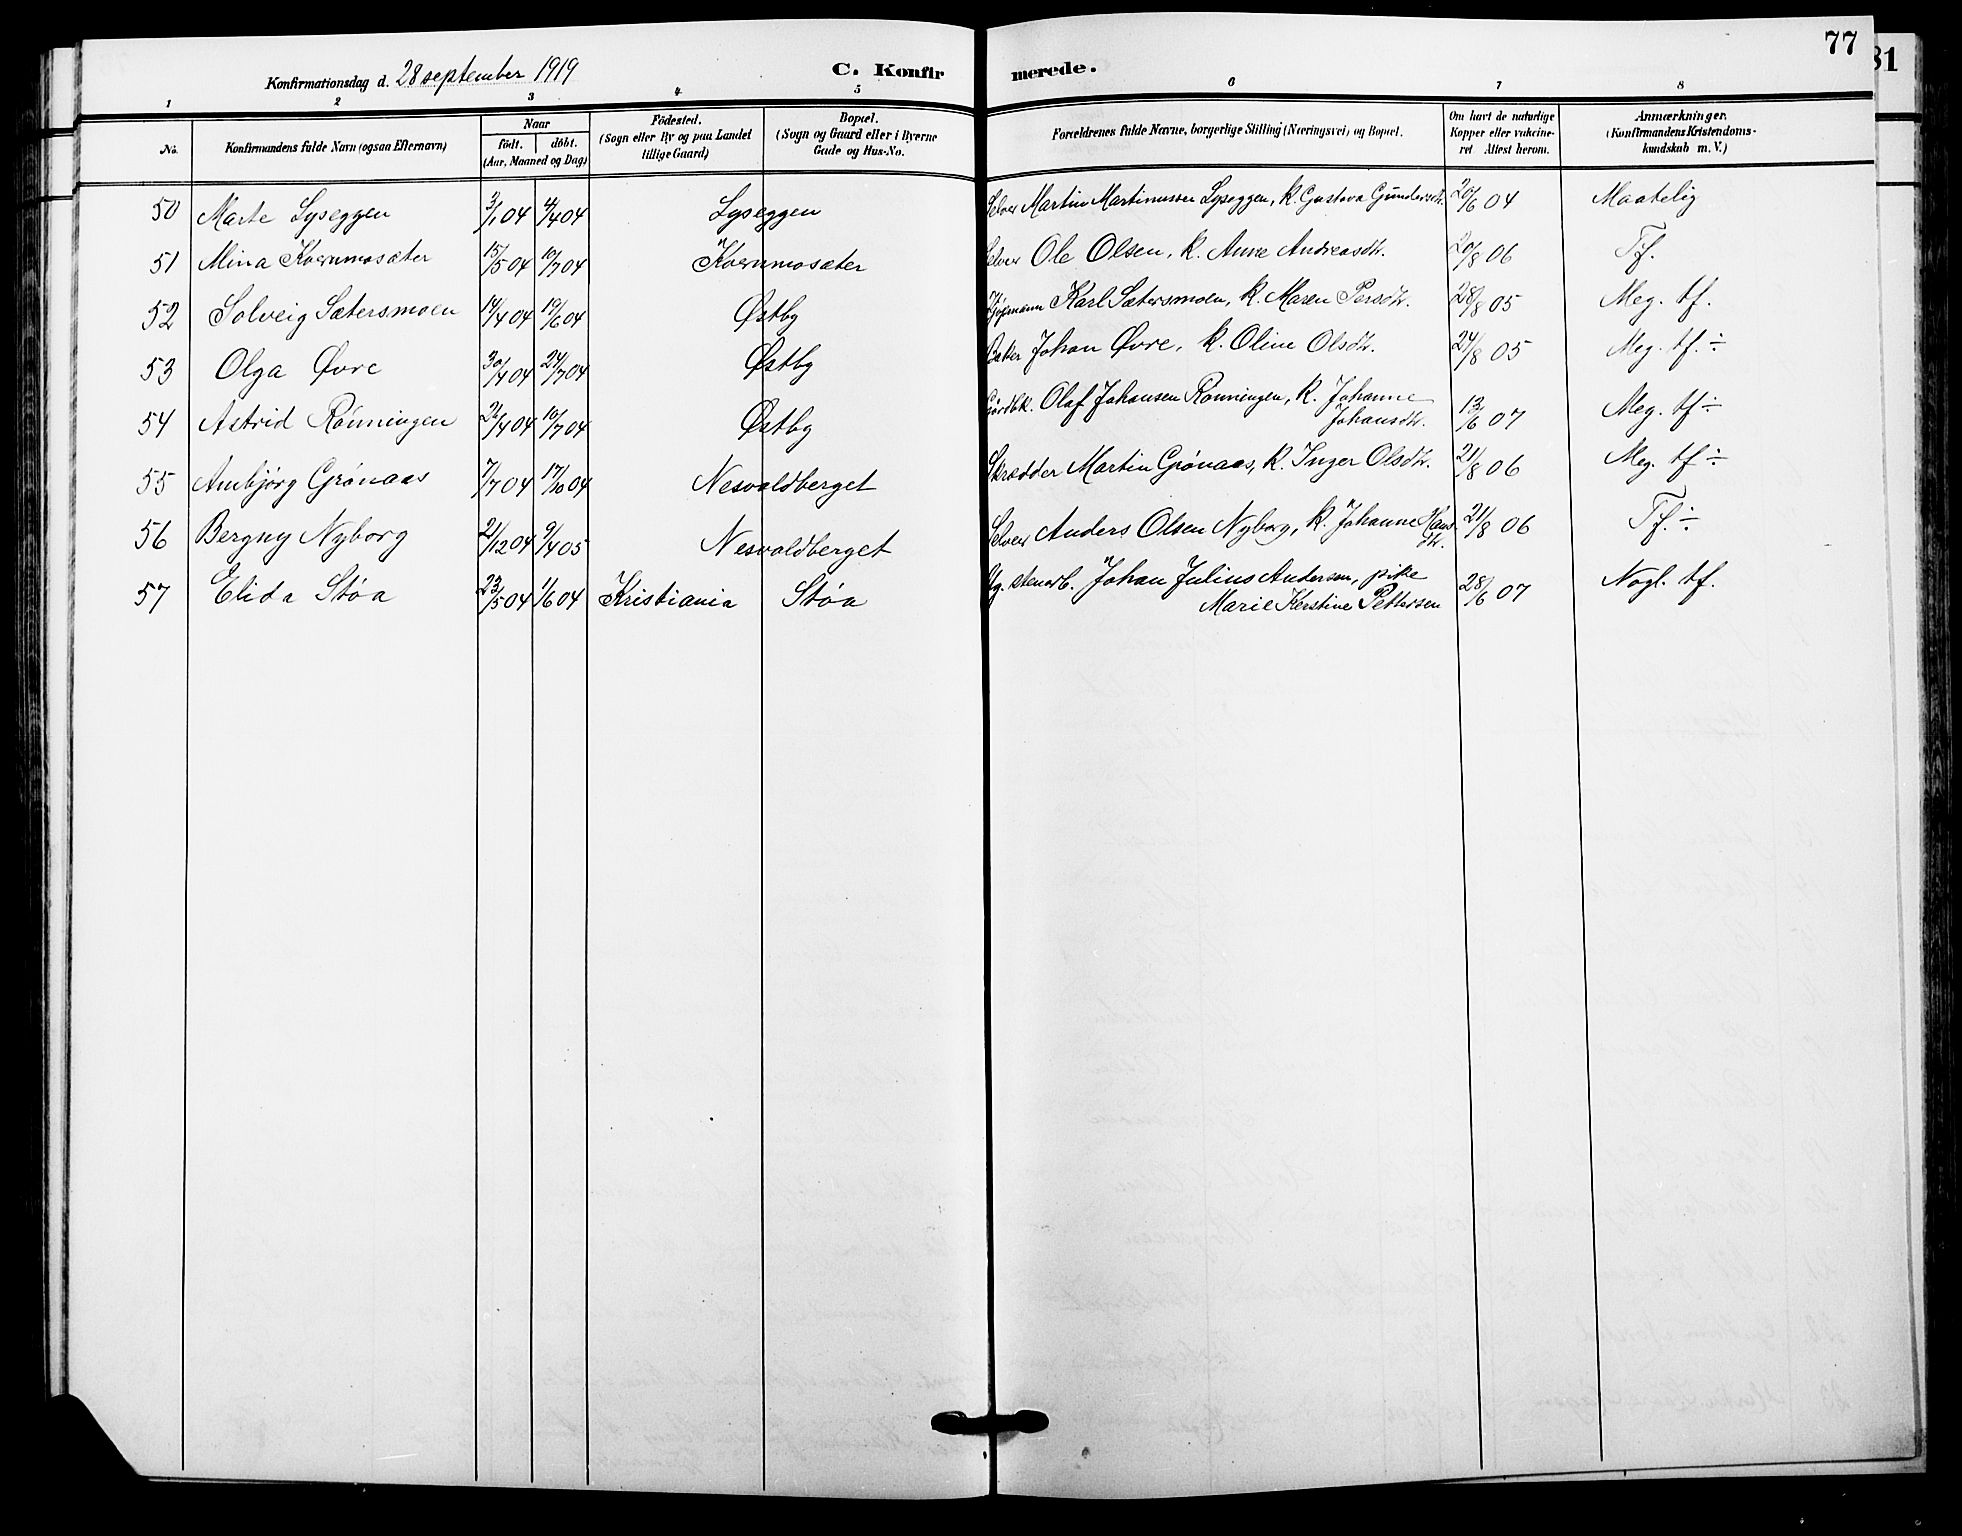 77
81
Konfirmationsdag d. 28 september 1919
C. Konfirmerede.
1 2 3 4 5 6 7 8
No. Konfirmandens fulde Navn (ogsaa Efternavn) Naar født. døbt. (Aar, Maaned og Dag) Fødested. (Sogn eller By og paa Landet tillige Gaard) Bopæl. (Sogn og Gaard eller i Byerne Gade og Hus-No. Forældrenes fulde Navne, borgerlige Stilling (Næringsvei) og Bopæl. Om havt de naturlige Kopper eller vaccineret Attest herom. Anmærkninger. (Konfirmandens Kristendomskundskab m. V.)
50 Marte Lyseggen 3/1 04 4/4 04 Lyseggen Selveier Martin Martinussen Lyseggen, k. Gustava Gundersdtr. 20/6 04 Maatelig
51 Mina Kvernmosæter 15/5 04 10/7 04 Kvernmosæter Selveier Ole Olsen, k. Anne Andreasdtr. 20/8 06 Tf.
52 Solveig Sætersmoen 14/4 04 19/6 04 Østby Karl Sætersmoen, k. Maren Persdtr. 28/8 05 Meg. tf.
53 Olga Øvre 30/4 04 24/7 04 Østby Johan Øvre, k. Oline Olsdtr. 24/8 05 Meg. tf. ÷
54 Astrid Rønningen 26/4 04 10/7 04 Østby Gårdbk. Olaf Johansen Rønningen, k. Johanne
Johansdtr. 13/6 07 Meg. tf ÷
55 Ambjørg Grønaas 7/7 04 17/10 04 Nesvoldberget Skrædder Martin Grønaas, k. Inger Olsdtr. 21/8 06 Meg. tf ÷
56 Bergny Nyborg 21/12 04 9/4 05 Nesvoldberget Selveier Anders Olsen Nyborg, k. Johanne Hans
dtr. 21/8 06 Tf. ÷
57 Elida Støa 23/5 04 1/6 04 Kristiania Støa Ug. stenarb. Johan Julius Andersen, pike
Marie Kerstine Pettersen 28/6 07 Nogl. tf.